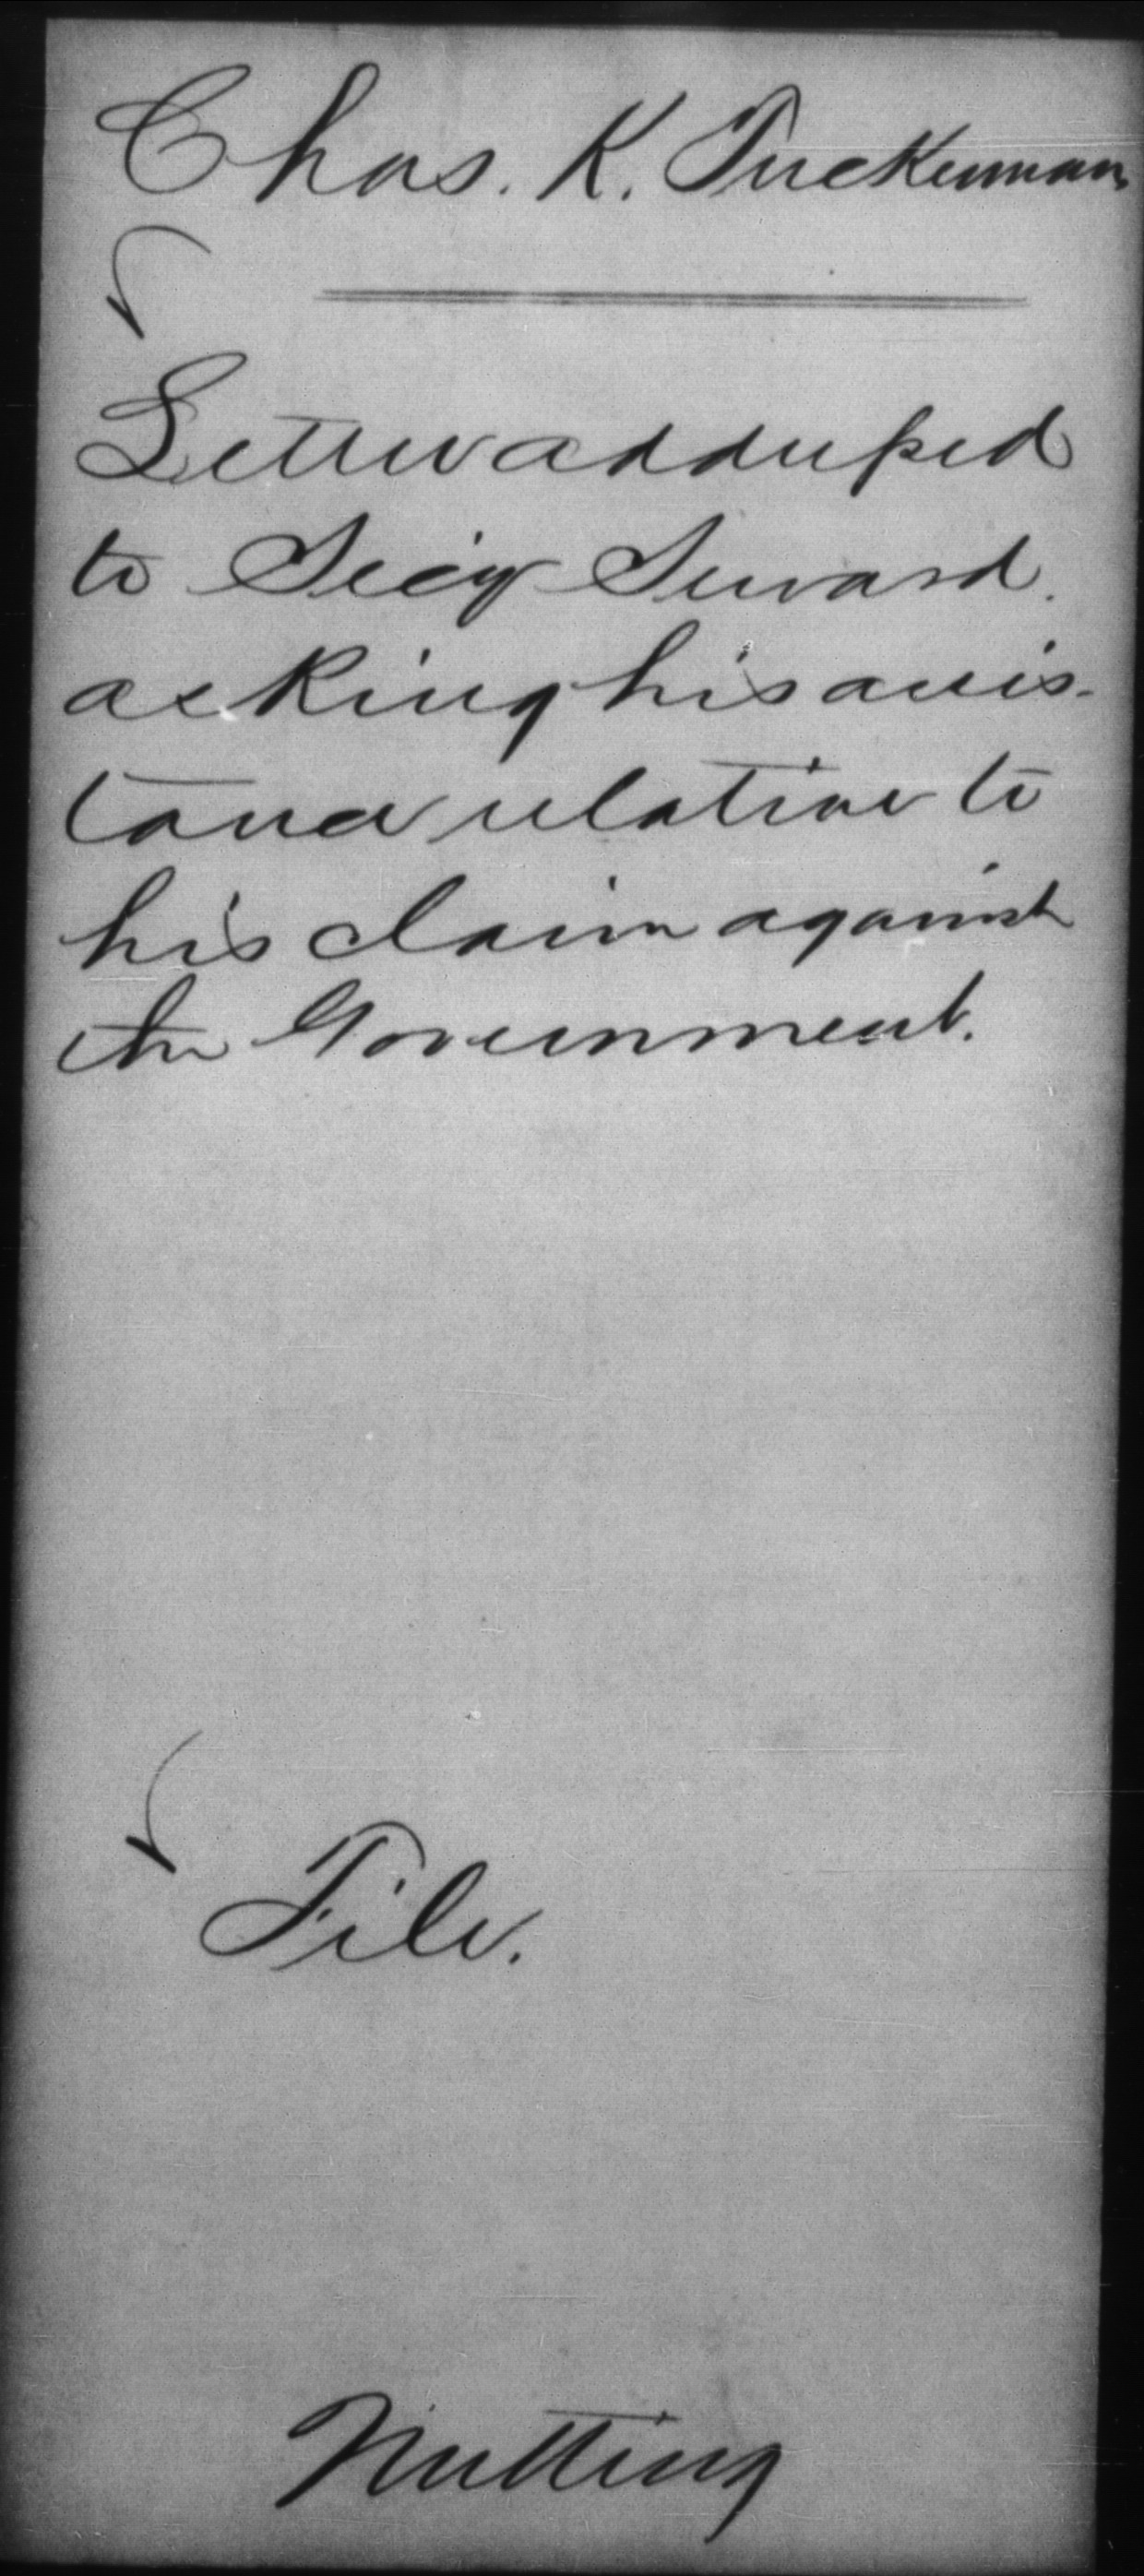 Chas. K. Tuckerman
Letter addressed
to Secy Seward.
asking his assis-
tance relative to
his claim against
the Government.
File.
Nutting